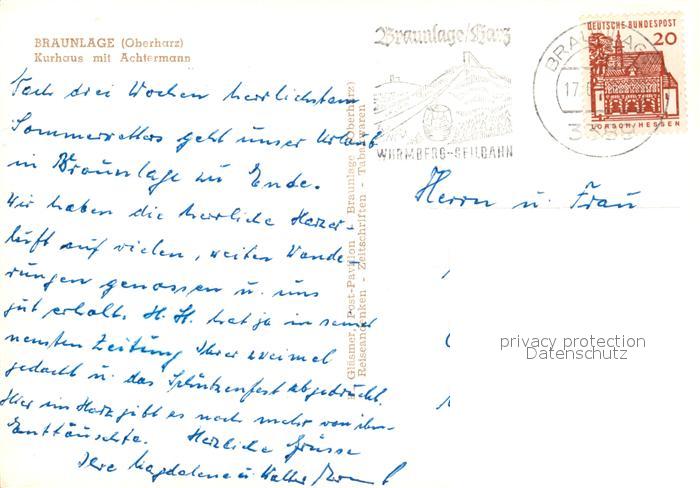 BRAUNLAGE (Oberharz)
Kurhaus mit Achtermann
Nach drei Wochen herrlichsten
Sommerwetters geht unser Urlaub
in Braunlage zu Ende.
Wir haben die herrliche Harzer-
luft auf vielen, weiten Wande-
rungen genossen u. uns
gut erholt. H. H. hat ja in
neusten Zeitung Ihrer zweimal
gedacht u. das Schützenfest abgedruckt.
Hier im Harz gibt es noch mehr von ihm
Enttäuschte. Herzliche Grüsse
Ihre Magdalena u. Walter
Glasmer, Post-Pavillon - Braunlage (Oberharz)
Reiseandenken - Zeitschriften - Tabakwaren
Braunlage/Harz
WURMBERG-SEILBAHN
BRAUNLAGE
17.
DEUTSCHE BUNDESPOST
20
LORSCH/HESSEN
Herrn u. Frau
privacy protection
Datenschutz